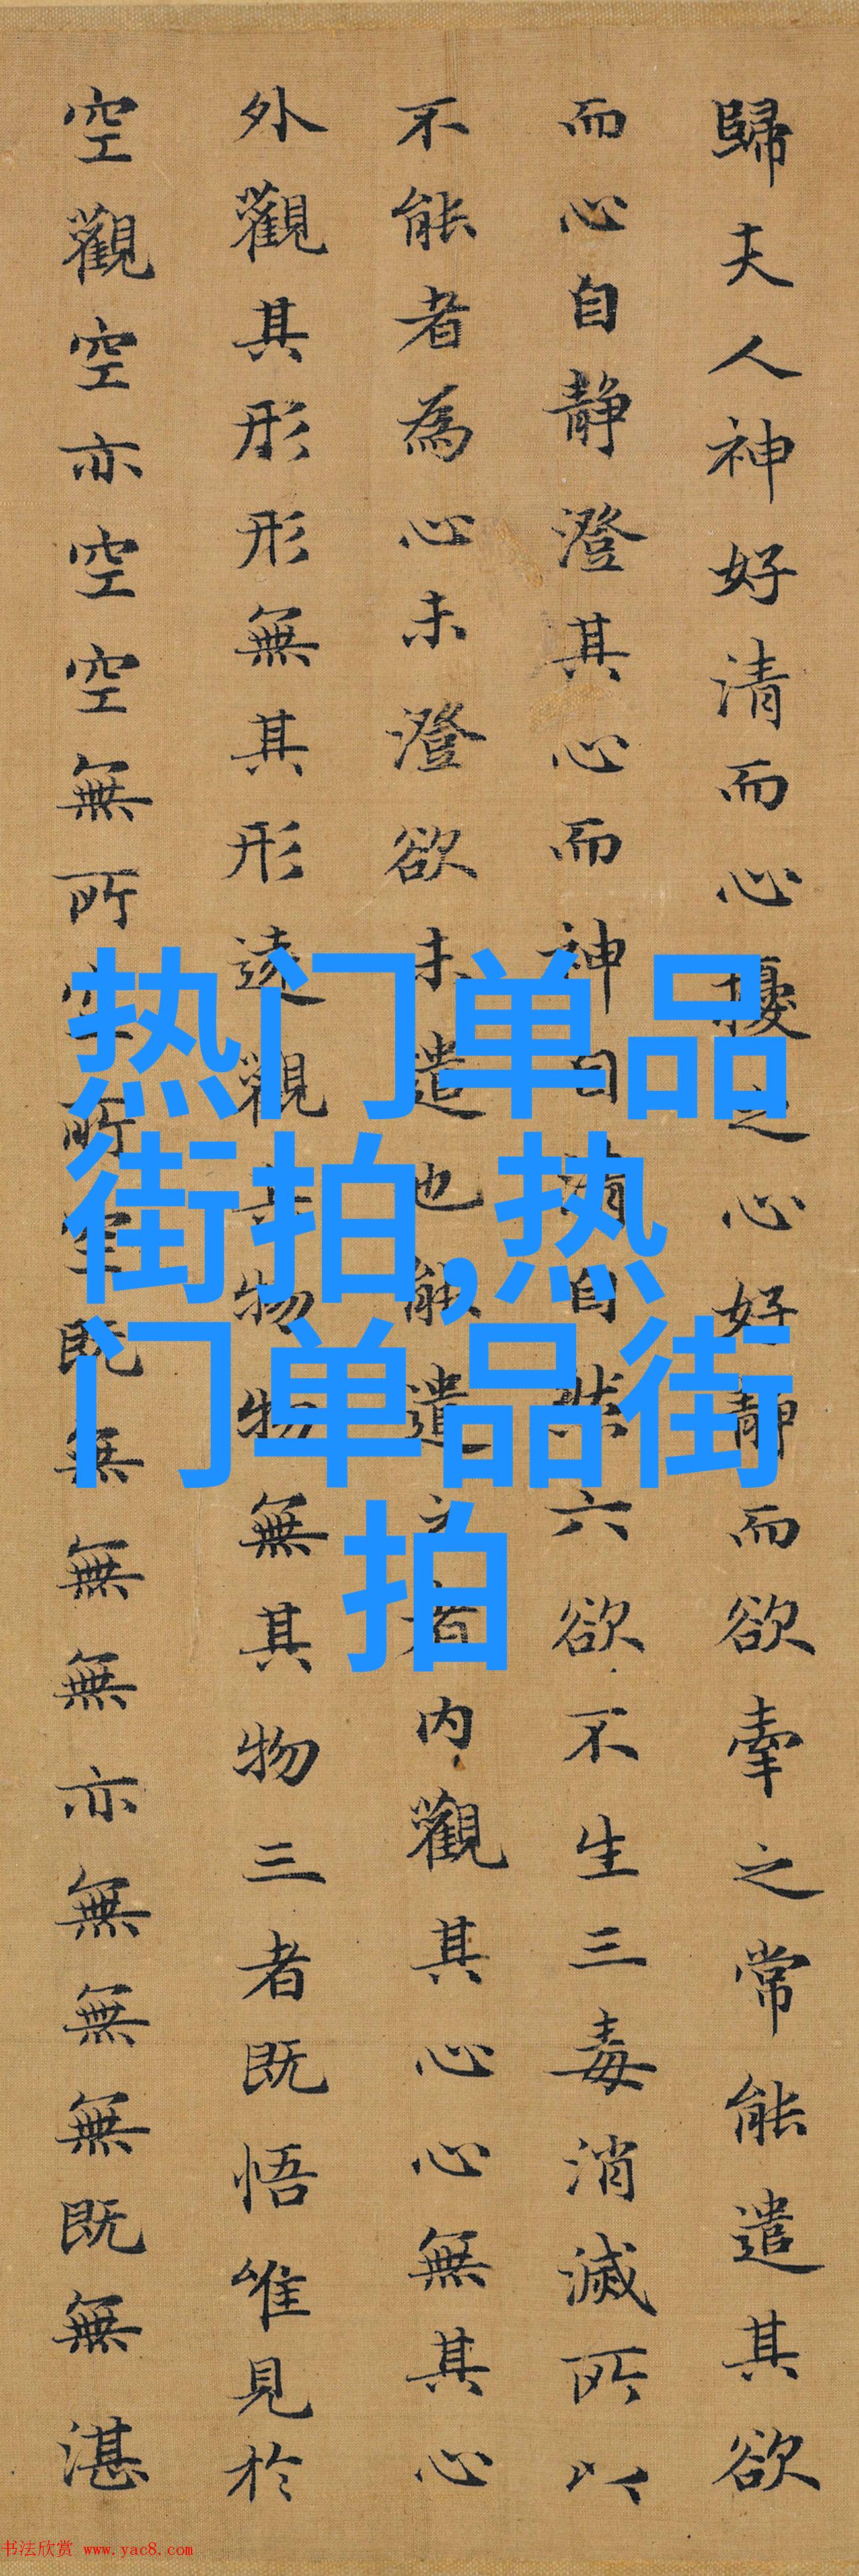 歸夫人神好清而心擾之心好靜而欲牽之常能遣其欲
而心自静澄其心而神自清自然六欲不生三毒消滅所以
不能者為心未澄欲未遣也能遣之者内觀其心心無其心
外觀其形形無其形遠觀其物物無其物三者既悟唯見於
空觀空亦空空無所空所空既無無無亦無無無既無湛
热门单品
街拍,热
门单品街
拍
书法欣赏 www.yac8.com